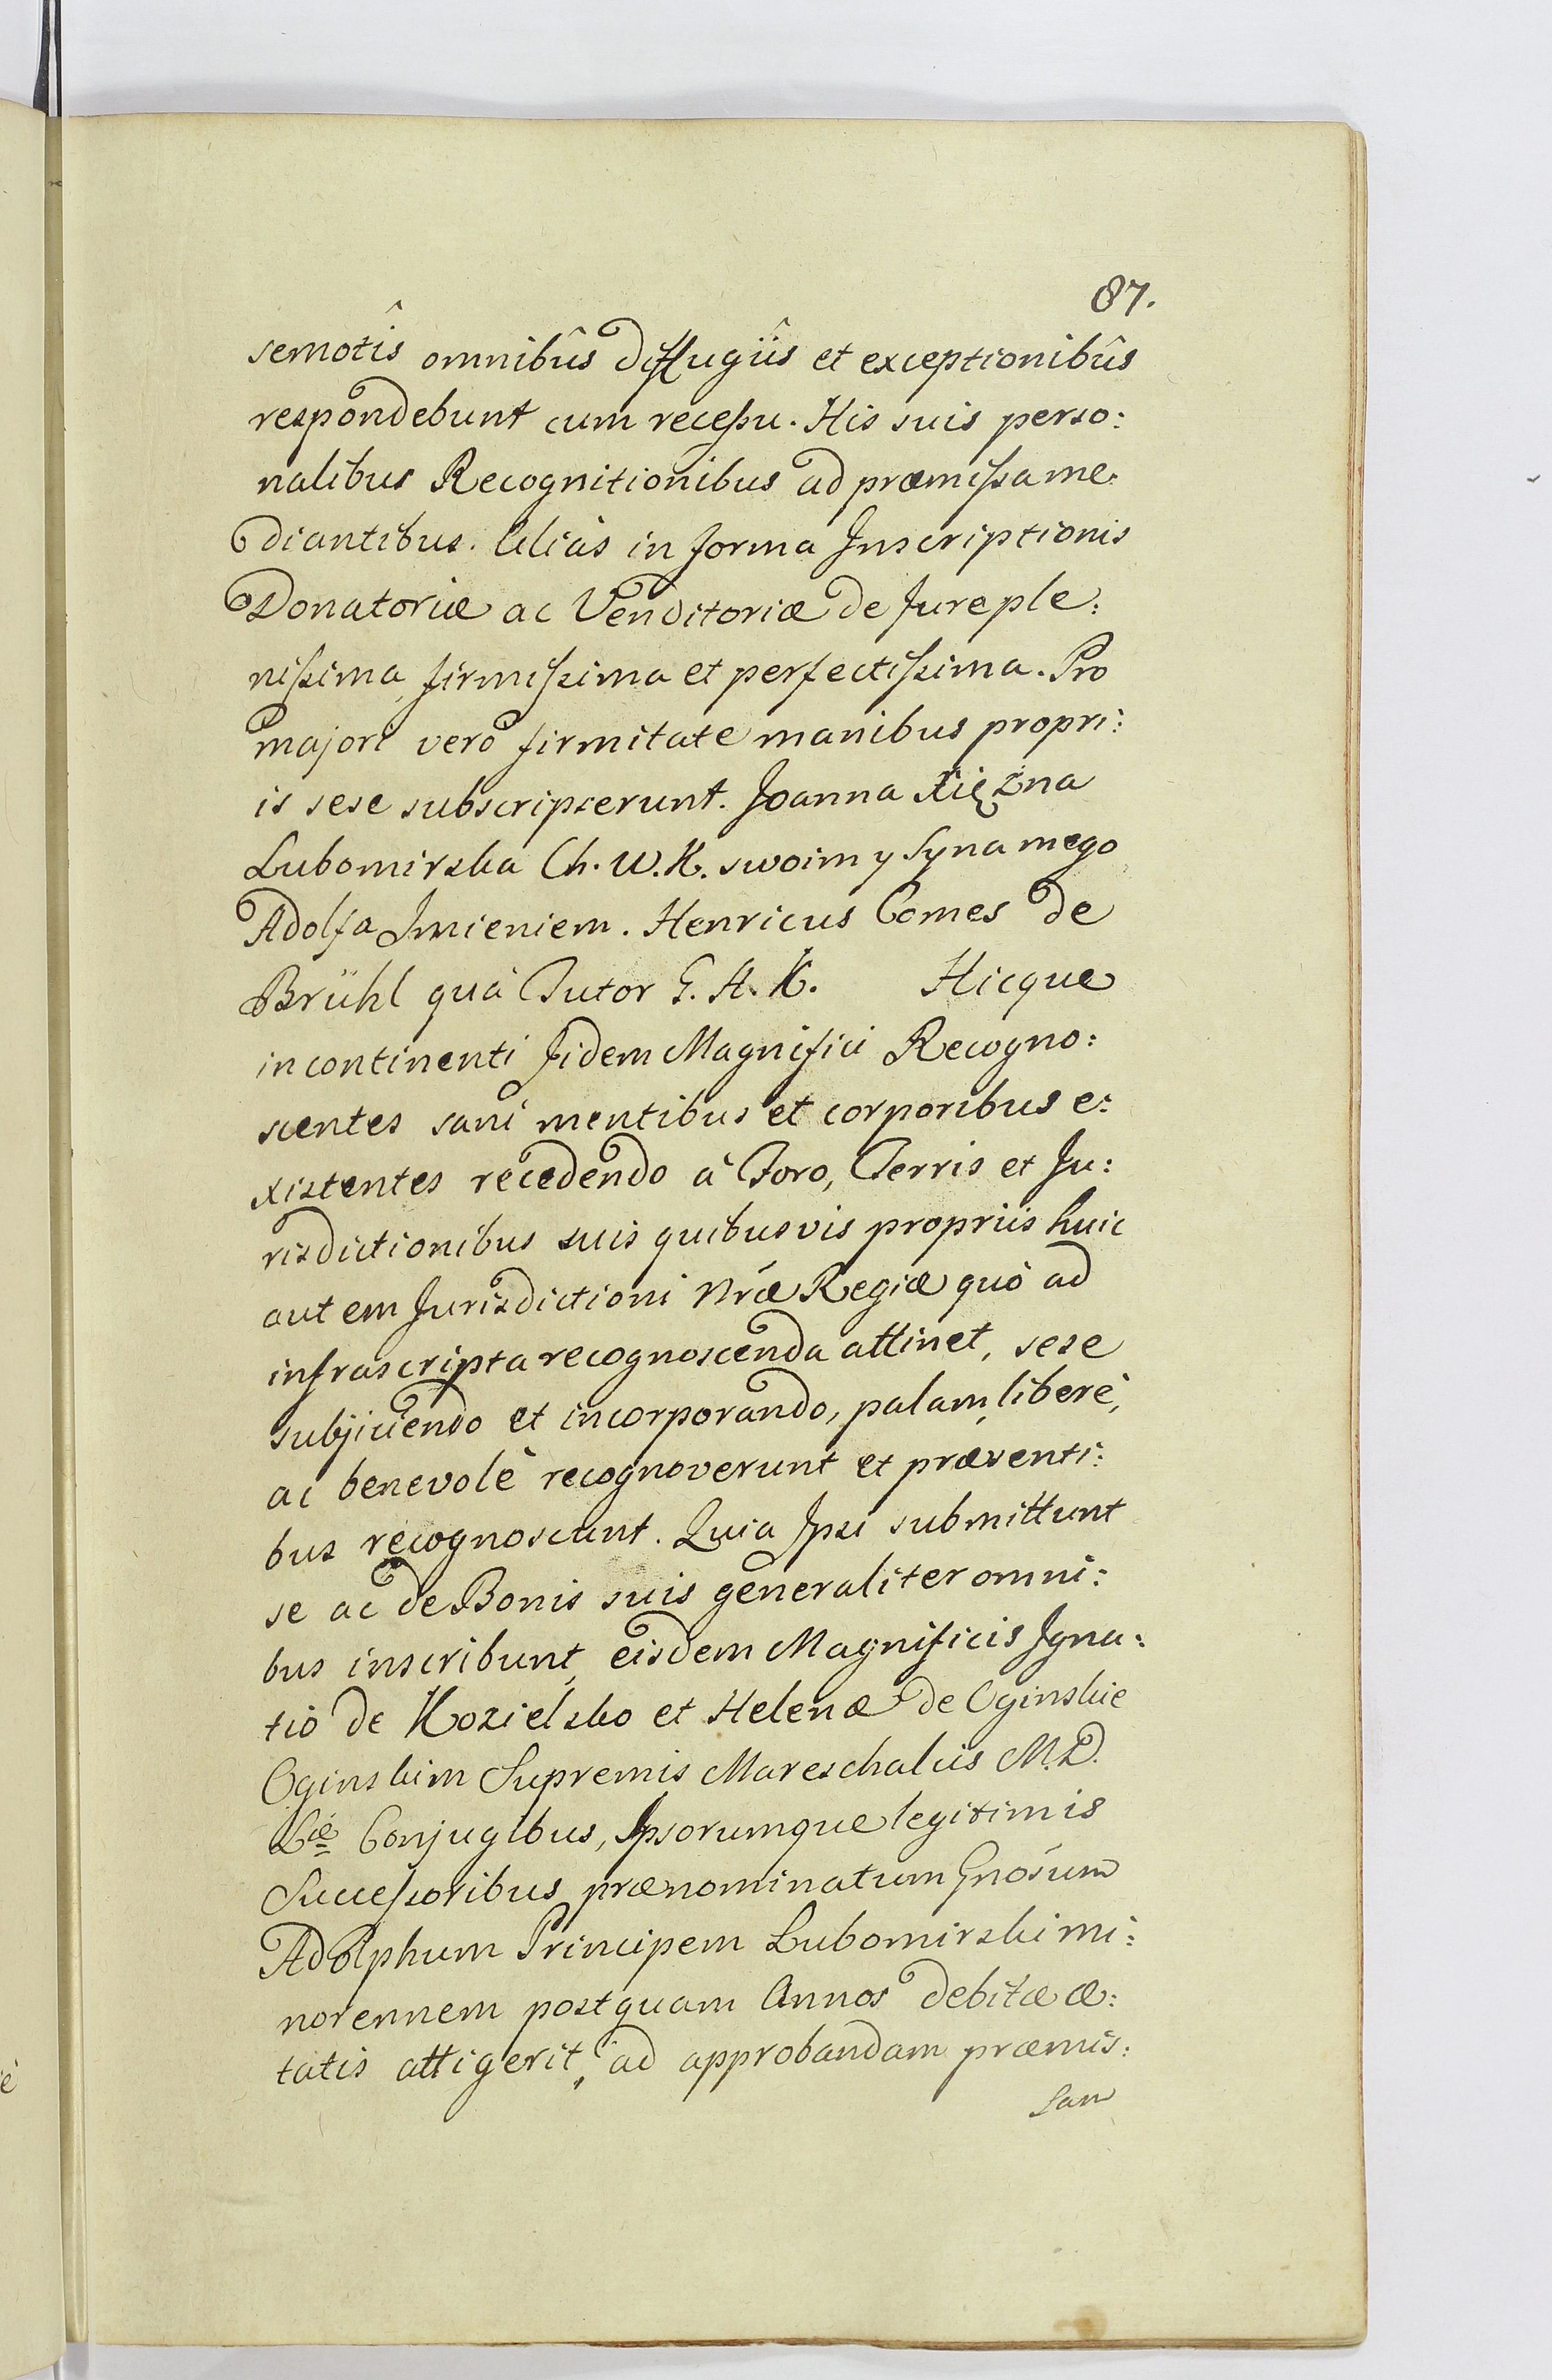 87.
semotîs omnibûs diffugiîs et exceptionibûs
respondebunt cum recessu. His suis perso:
nalibus Recognitionibus ad præmissa me:
diantibus. Aliàs in forma Inscriptionis
Donatoriæ ac Venditoriæ de Jure ple:
nissima, firmissima et perfectissima. Pro
majori verò firmitate manibus propri:
is sese subscripserunt. Joanna Xiężna
Lubomirska Ch. W. K. swoim y Syna mego
Adolfa Imieniem. Henricus Comes de
Brühl quà Tutor G. A. K. Hicque
in continenti Iidem Magnifici Recogno:
scentes sani mentibus et corporibus e:
xistentes recedendo à Foro, Terris et Ju:
risdictionibus suis quibusvis propriis huic
autem Jurisdictioni Nræ Regiæ quò ad
infrascripta recognoscenda attinet, sese
subjiciendo et incorporando, palam, liberè,
ac benevolè recognoverunt et præsenti:
bus recognoscunt. Quia Ipsi submittunt
se ac de Bonis suis generaliter omni:
bus inscribunt, eisdem Magnificis Igna:
tio de Kozielsko et Helenæ de Oginskie
Oginskim Supremis Mareschalcis M. D.
Liæ Conjugibus, Ipsorumque legitimis
Successoribus prænominatum Gnosum
Adolphum Principem Lubomirski mi:
norennem postquam Annos debitæ æ:
tatis attigerit, ad approbandam præmis:
sam